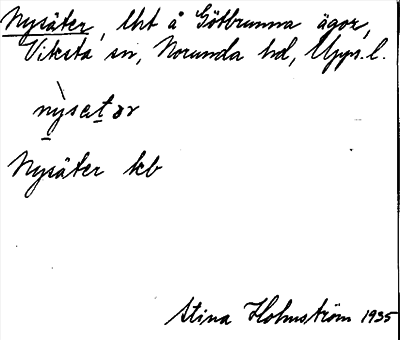 Nysäter, lht å Götbrunna ägor,
Viksta sn, Norunda hd, Upps. l.
nỳsætər
Nysäter kb
Stina Holmström 1935